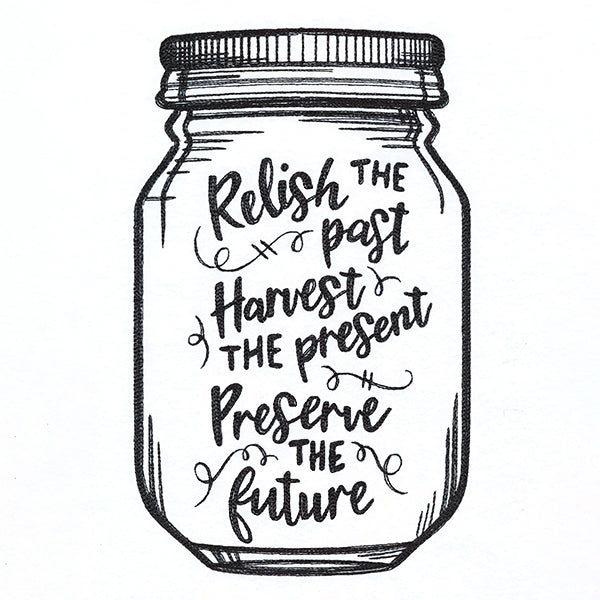 Relish THE
past
Harvest
THE present
Preserve
THE
future